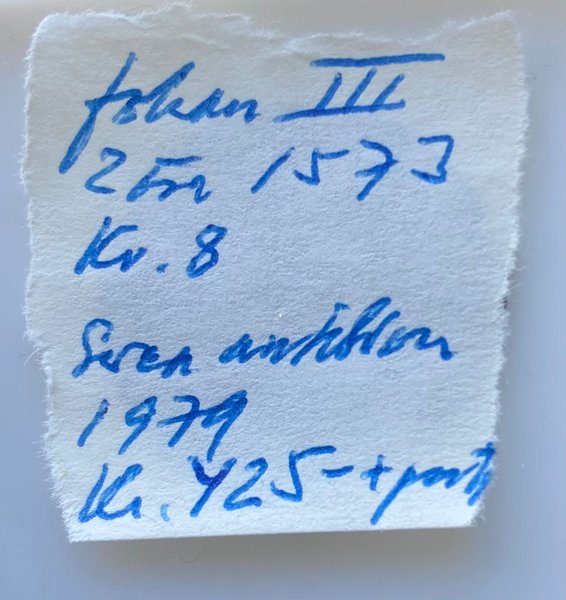 Johan III
2 Öre 1573
Kv. 8
Sven
1979
Kr. 425-+porto